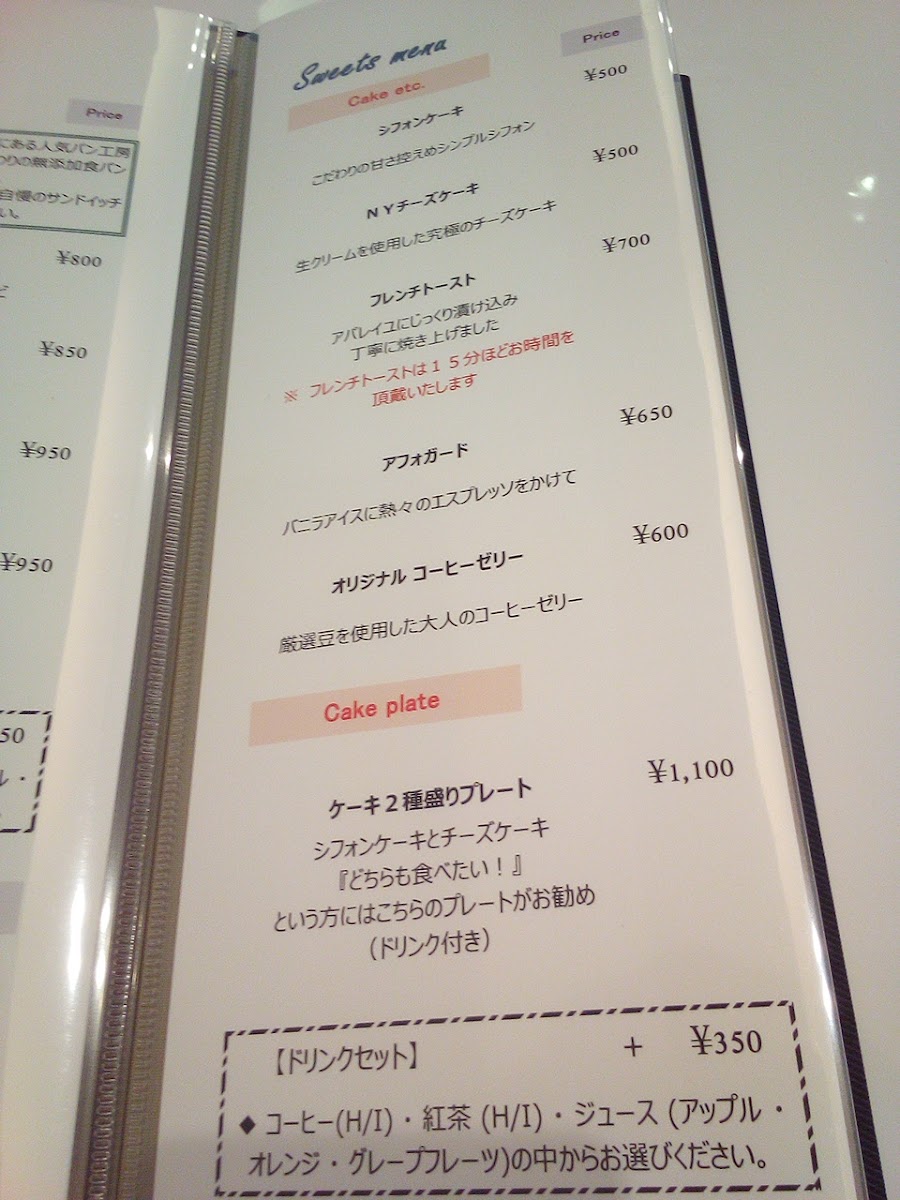 Price
にある人気パン工房
わりの無添加食パン
自慢のサンドイッチ
い。
¥800
¥850
¥950
¥950
50
ル・
Sweets menu
Price
Cake etc.
¥500
シフォンケーキ
こだわりの甘さ控えめシンプルシフォン
¥500
NYチーズケーキ
生クリームを使用した究極のチーズケーキ
¥700
フレンチトースト
アパレイユにじっくり漬け込み
丁寧に焼き上げました
※ フレンチトーストは15分ほどお時間を
頂戴いたします
¥650
アフォガード
バニラアイスに熱々のエスプレッソをかけて
¥600
オリジナル コーヒーゼリー
厳選豆を使用した大人のコーヒーゼリー
Cake plate
¥1,100
ケーキ2種盛りプレート
シフォンケーキとチーズケーキ
『どちらも食べたい!』
という方にはこちらのプレートがお勧め
(ドリンク付き)
【ドリンクセット】 + ¥350
◆ コーヒー(H/I)・紅茶 (H/I)・ジュース (アップル・
オレンジ・グレープフレーツ)の中からお選びください。